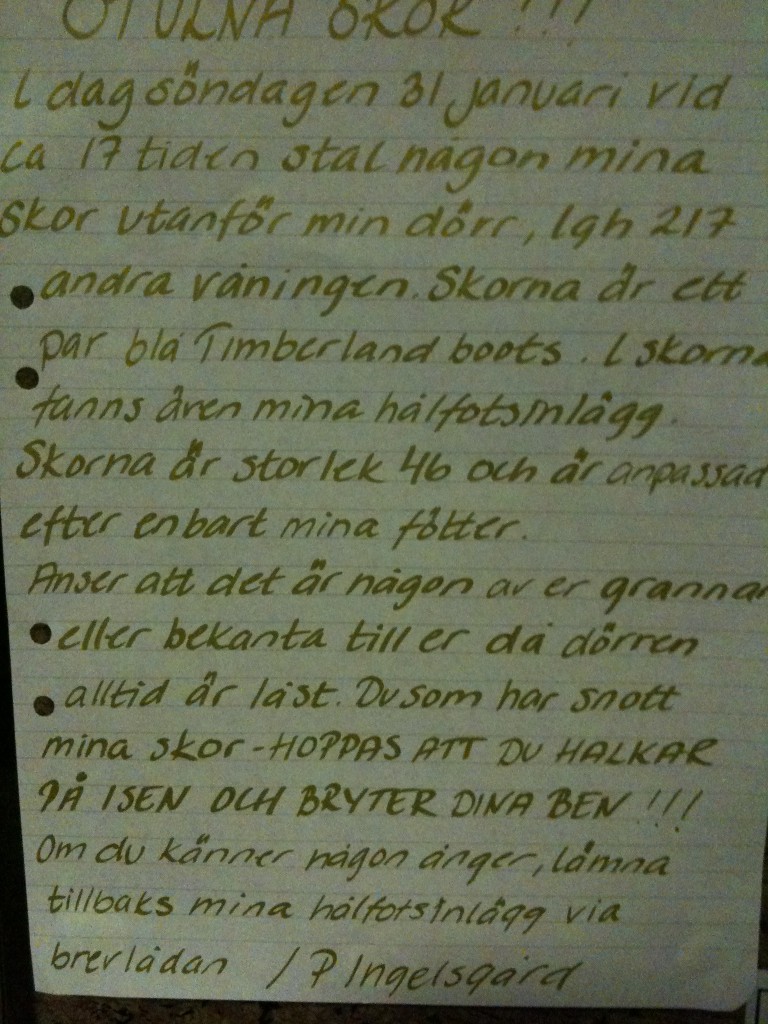 STULNA SKOR !!!
I dag söndagen 31 januari vid
ca 17 tiden stal någon mina
skor utanför min dörr, lgh 217
andra våningen. Skorna är ett
par blå Timberland boots. I skorna
fanns även mina hålfotsinlägg.
Skorna är storlek 46 och är anpassad
efter enbart mina fötter.
Anser att det är någon av er grannar
eller bekanta till er då dörren
alltid är låst. Du som har snott
mina skor - HOPPAS ATT DU HALKAR
PÅ ISEN OCH BRYTER DINA BEN !!!
Om du känner någon ånger, lämna
tillbaks mina hålfotsinlägg via
brevlådan / P Ingelsgård